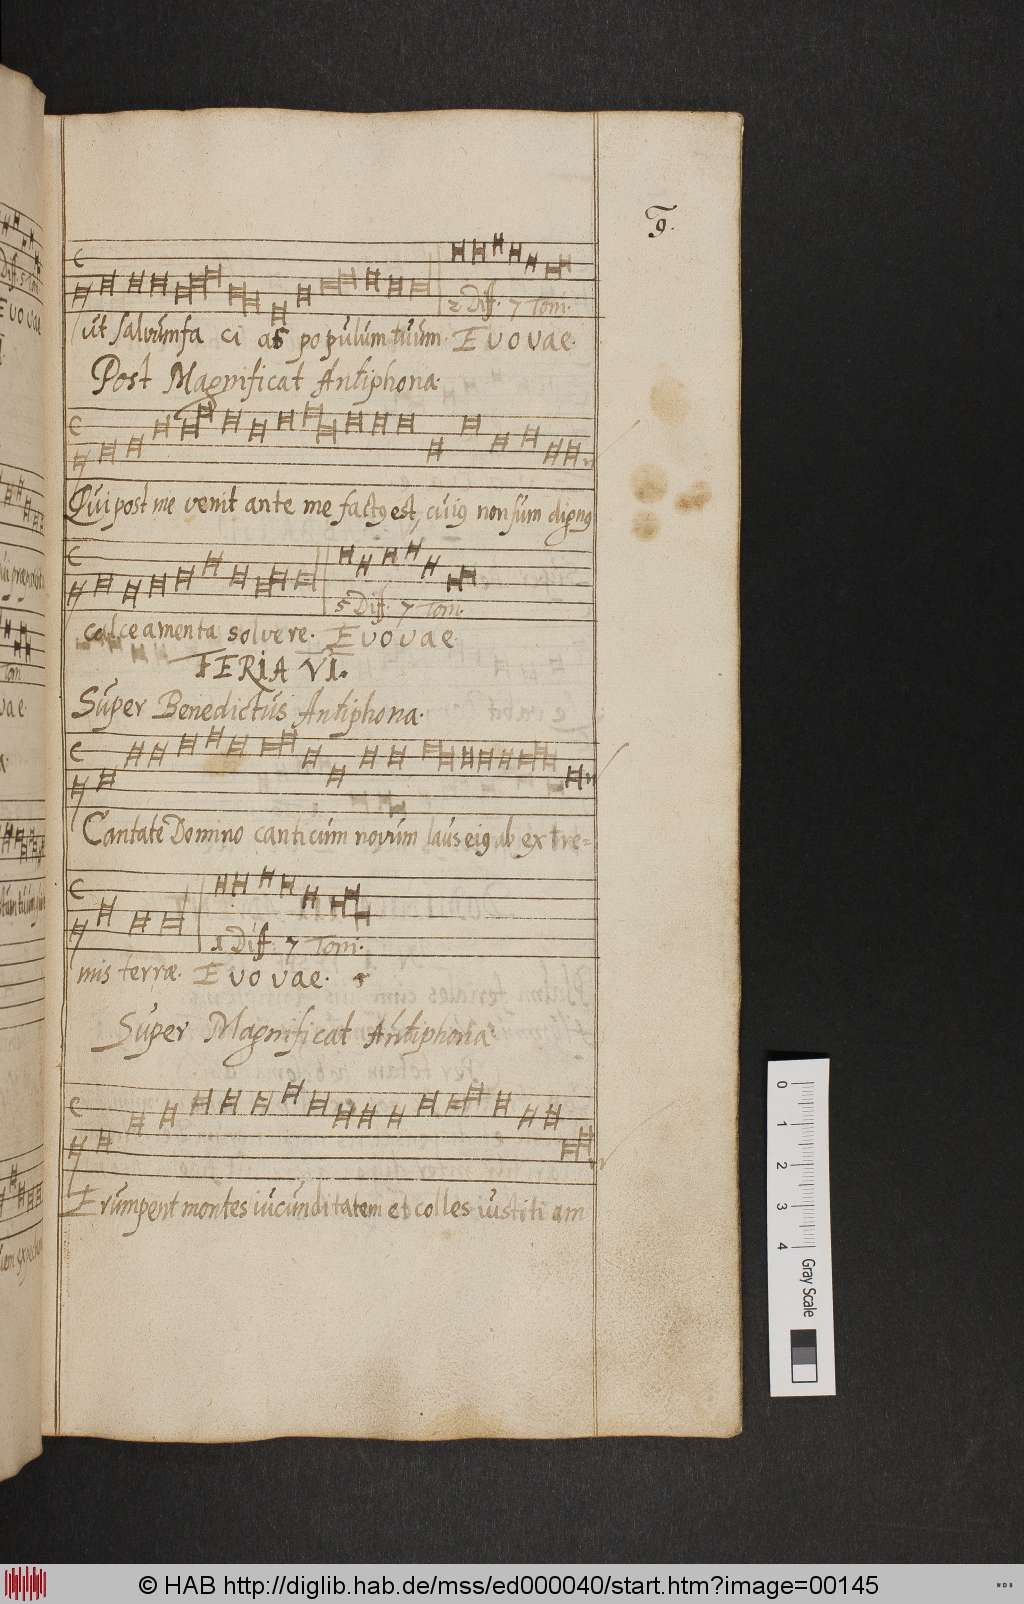 T 9.
2 Diff. 7 Tom.
ut salvumfa ci as populum tuum. E v o v a e.
Post Magnificat Antiphona.
Qui post me venit ante me factꝰ est, cuiꝰ non sum dignꝰ
5 Diff. 7 Tom.
calceamenta solvere. E v o v a e.
FERIA VI.
Super Benedictus Antiphona.
Cantate Domino canticum novum laus eiꝰ ab extre=
1 Diff. 7 Tom.
mis terræ. E v o v a e.
Super Magnificat Antiphona
Erumpent montes iucunditatem et colles iustiti am
0 1 2 3 4 Gray Scale
© HAB http://diglib.hab.de/mss/ed000040/start.htm?image=00145